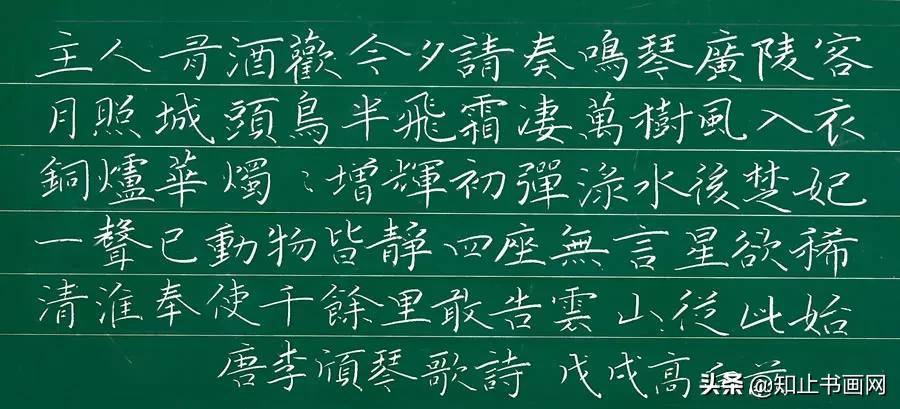 主人有酒歡今夕請奏鳴琴廣陵客
月照城頭鳥半飛霜凄萬樹風入衣
銅爐華燭〻增輝初彈淥水後楚妃
一聲已動物皆靜四座無言星欲稀
清淮奉使千餘里敢告雲山從此始
唐李頎琴歌詩 戊戌高
头条 @知止书画网